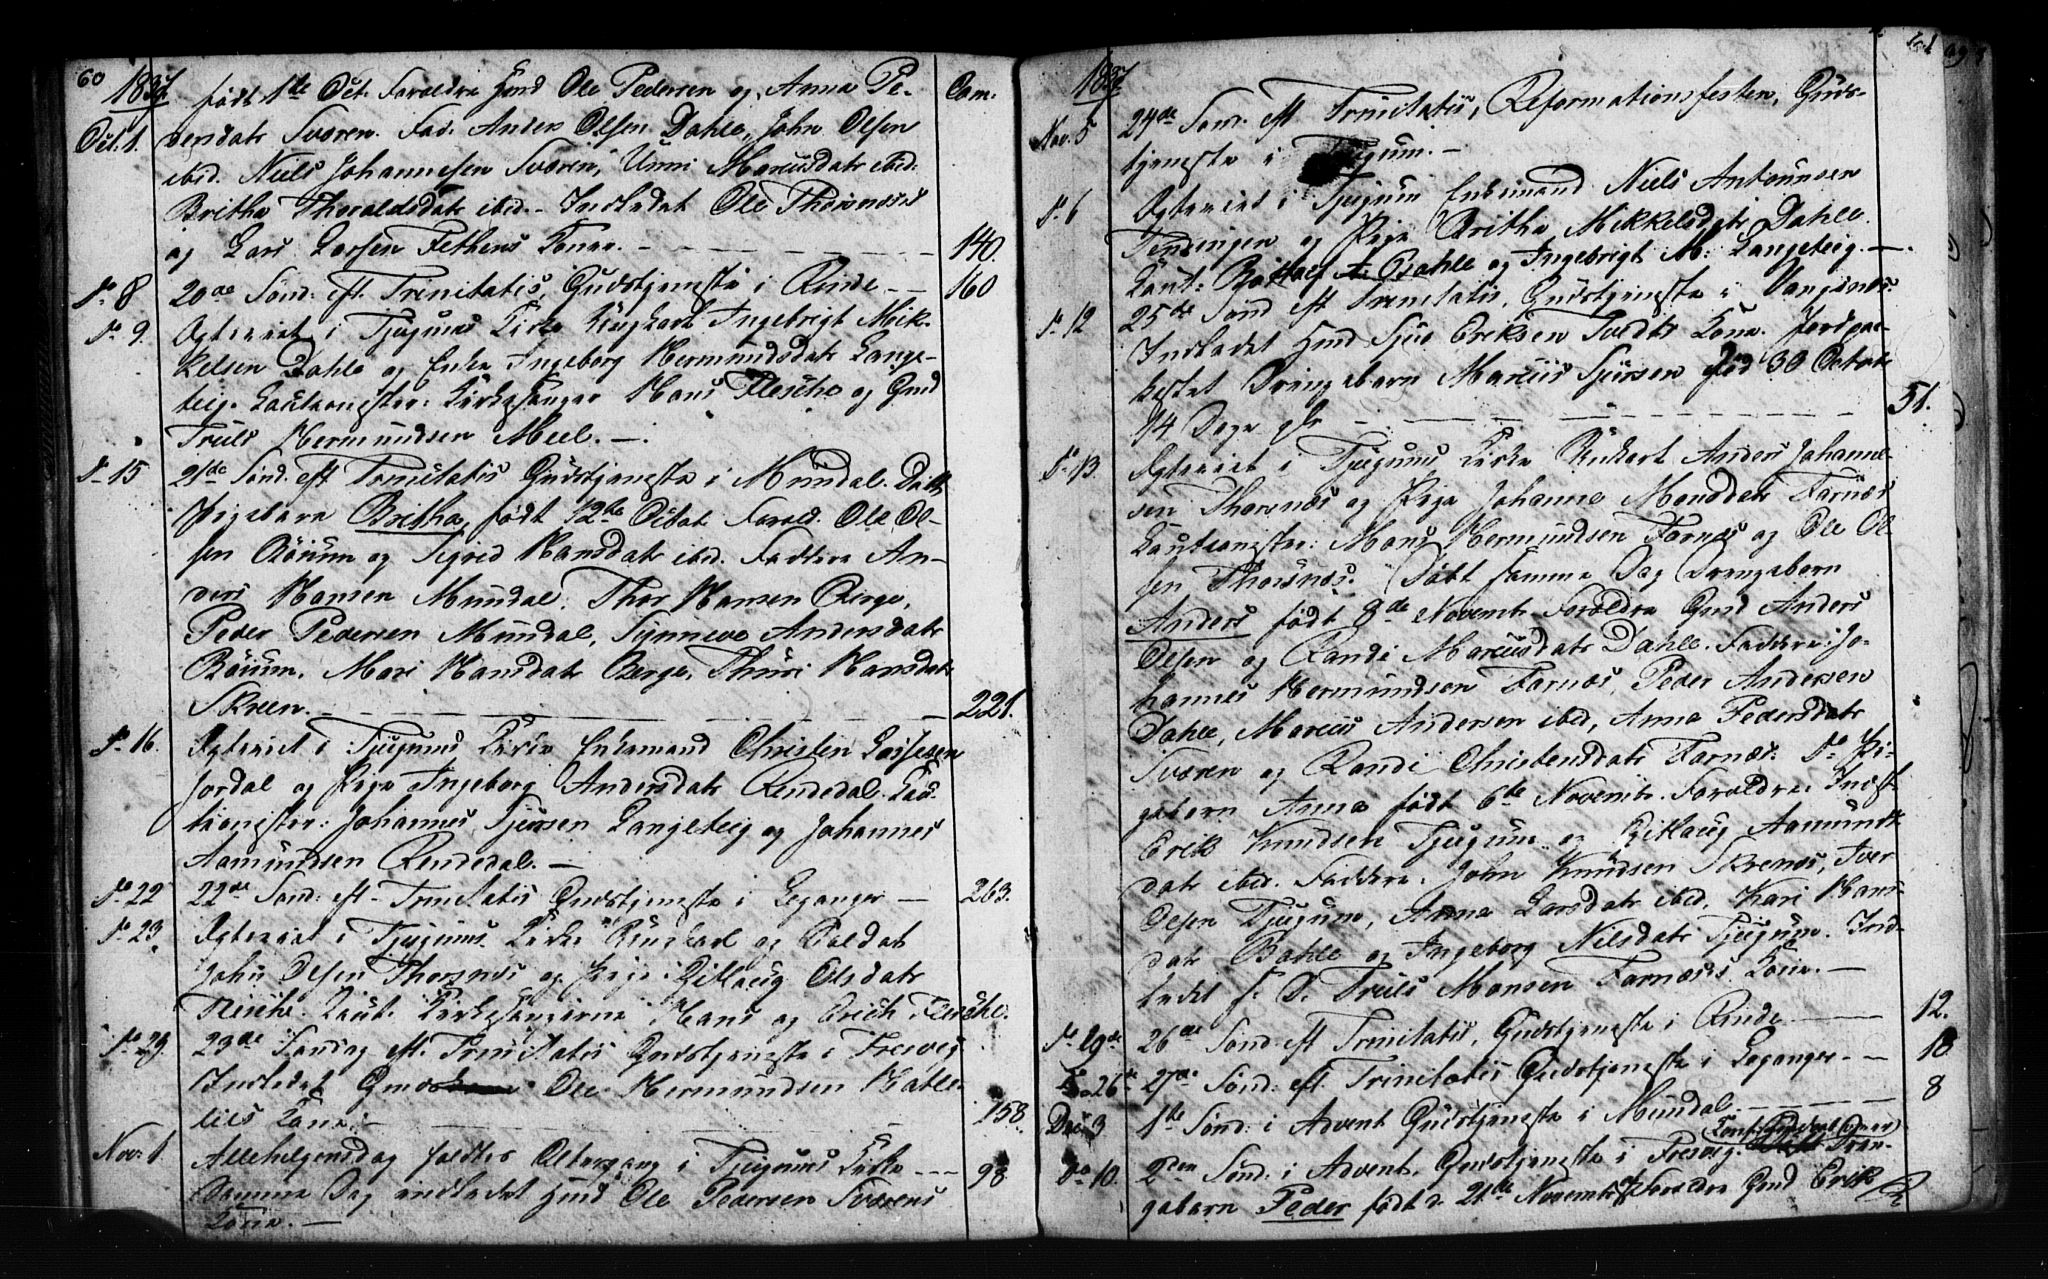 60
1837
født 1de Oct. Forældre Hmd Ole Pedersen og Anna Pe-
Com.
Oct. 1.
dersdatr Sværen. Fad. Anders Olsen Dahle, John Olsen
ibid. Niels Johannesen Sværen, Unni Marcusdatr ibid.
Britha Thoraldsdatr ibid. - Indledet Ole Thorsnæs's
og Lars Larsen Fethens Koner. - 140.
D. 8 20de Sønd: eft. Trinitatis, Gudstjeneste i Rinde - - 160
D. 9. Egteviet i Tjugums Kirke Ungkarl Ingebrigt Mik-
kelsen Dahle og Enke Ingeborg Hermundsdatr Lange-
teig. Cautionister: Kirkesanger Hans Flesche og Gmd
Truls Hermundsen Meel. -
D. 15 21de Sønd. eft Trinitatis Gudstjeneste i Mundal. Døbt
Pigebarn Britha, født 12te Octbr. Foræld. Ole Ol-
sen Bøium og Sigrid Hansdatr ibid. Faddere An-
ders Hansen Mundal, Thor Hansen Berge,
Peder Pedersen Mundal, Synneve Andersdatr
Bøium, Mari Hansdatr Berge, Thuri Hansdatr
Skreen. - 221.
D. 16. Egteviet i Tjugums Kirke Enkemand Christen
Jordal og Pige Ingeborg Andersdatr Rendedal. Cau-
tionister: Johannes Sjursen Langeteig og Johannes
Aamundsen Rendedal. -
D. 22 22de Sønd: eft Trinitatis Gudstjeneste i Leganger - 263.
D. 23. Egteviet i Tjugums Kirke Ungkarl og Soldat
John Olsen Thorsnæs og Pige Gitlaug Olsdatr
Flesche. Caut. Kirkesangerne Hans og Erich Flesche.
D. 29. 23de Søndag eft. Trinitatis Gudstjeneste i Fresvig
Indledet Gmd Ole Hermundsen Hatle-
lils Kone. - 158.
Nov. 1 Allehelgensdag holdtes Altergang i Tjugums Kirke - - - 98
Samme Dag indledet Hmd Ole Pedersen Sværens
Kone. -
61
1837
Nov. 5 24de Sønd. eft Trinitatis, Reformationsfesten, Guds-
tjeneste i Tjugum. -
D. 6 Egteviet i Tjugum Enkemand Niels Antounsen
Tendingen og Pige Britha Mikkelsdatr Dahle.
Caut: A. Dahle og Ingebrigt M: Langeteig. -
D. 12 25de Sønd eft Trinitatis, Gudstjeneste i Vangsnes.
Indledet Hmd Sjur Eriksen Tvedts Kone. Jordpaa-
kastet Drengebarn Marcus Sjursen død 30 Octobr
14 Dage gl. - 51.
D. 13. Egteviet i Tjugums Kirke Unkarl Anders Johanne-
sen Thorsnæs og Pige Johanne Monsdatr Farnæs
Cautionister: Mons Hermundsen Farnæs og Ole Ol-
sen Thorsnæs. Døbt samme Dag Drengebarn
Anders født 8de Novembr Forældre Gmd Anders
Olsen og Randi Marcusdatr Dahle. Faddere: Jo-
hannes Hermundsen Farnæs, Peder Andersen
Dahle, Marcus Andersen ibid, Anna Pedersdatr
Sværen og Randi Christensdatr Farnæs. D. Pi-
gebarn Anna født 6te Novembr. Forældre: Indst
Erik Knudsen Tjugum og Gitlaug Aamunds-
datr ibid. Faddere. John Knudsen Skrenes, Iver
Olsen Tjugum, Anna Larsdatr ibid, Kari Hans-
datr Bahle og Ingeborg Nilsdatr Tjugum. Ind-
ledet s. D. Truls Monsen Farnæs's Kone. -
D. 19de 26de Sønd: eft Trinitatis, Gudstjeneste i Rinde - 12.
D. 26de 27de Sønd: eft. Trinitatis Gudstjeneste i Leganger - - 18
Decbr 3 1ste Sønd: i Advent Gudstjeneste i Mundal - 8
Do 10. 2den Sønd: i Advent. Gudstjeneste i Fresvig. Dren-
gebarn Peder født d. 21de Novembr Forældre Gmd Erik